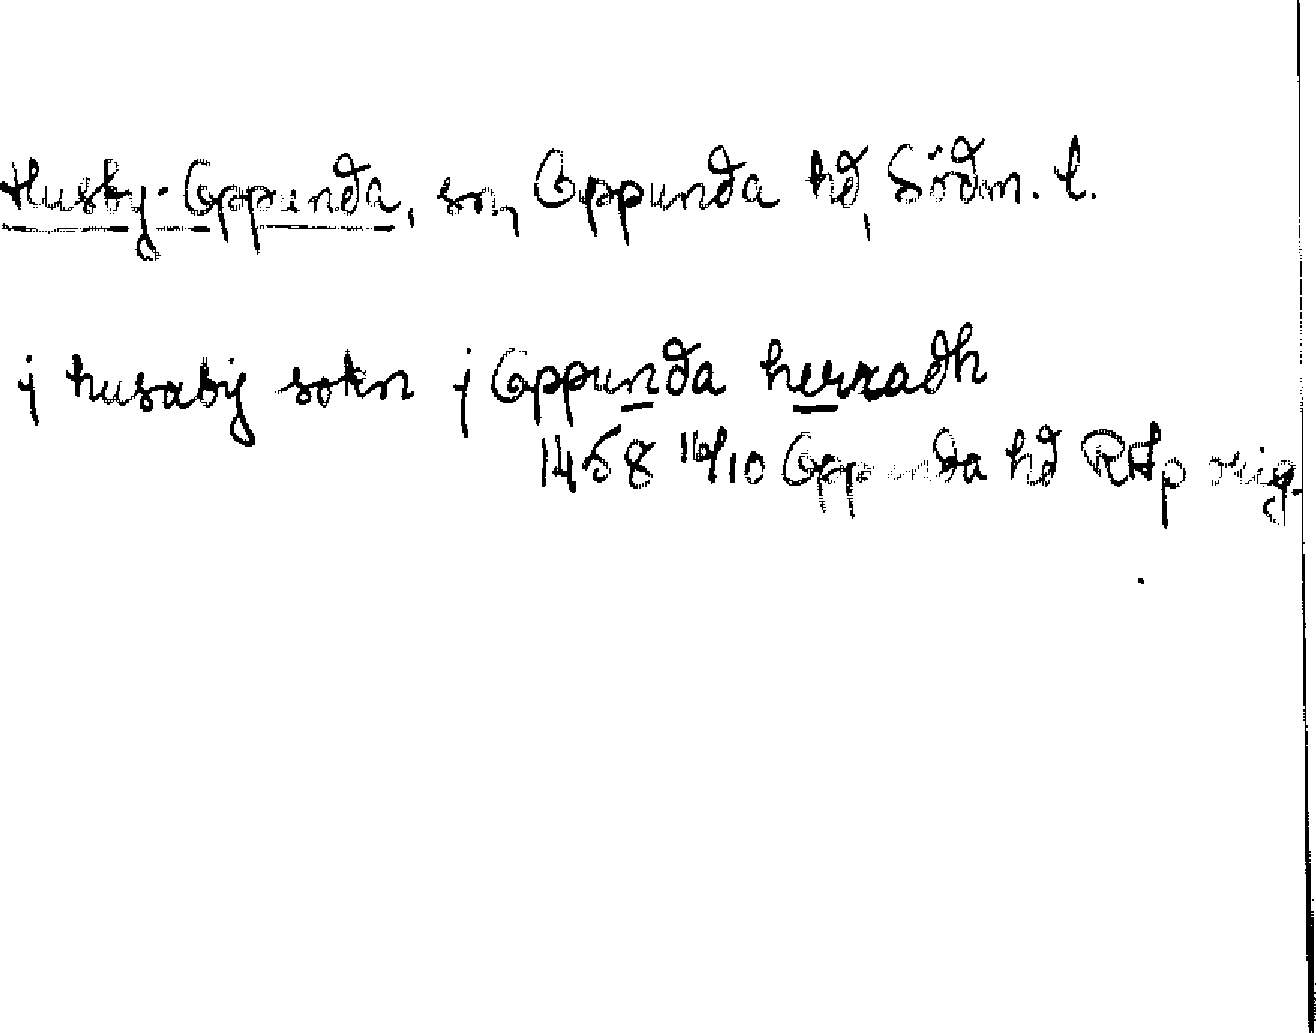 Husby-Oppunda, sn, Oppunda hd, Södm. l.
j husaby sokn j Oppunda herradh
1458 16/10 Oppunda hd RAp orig.